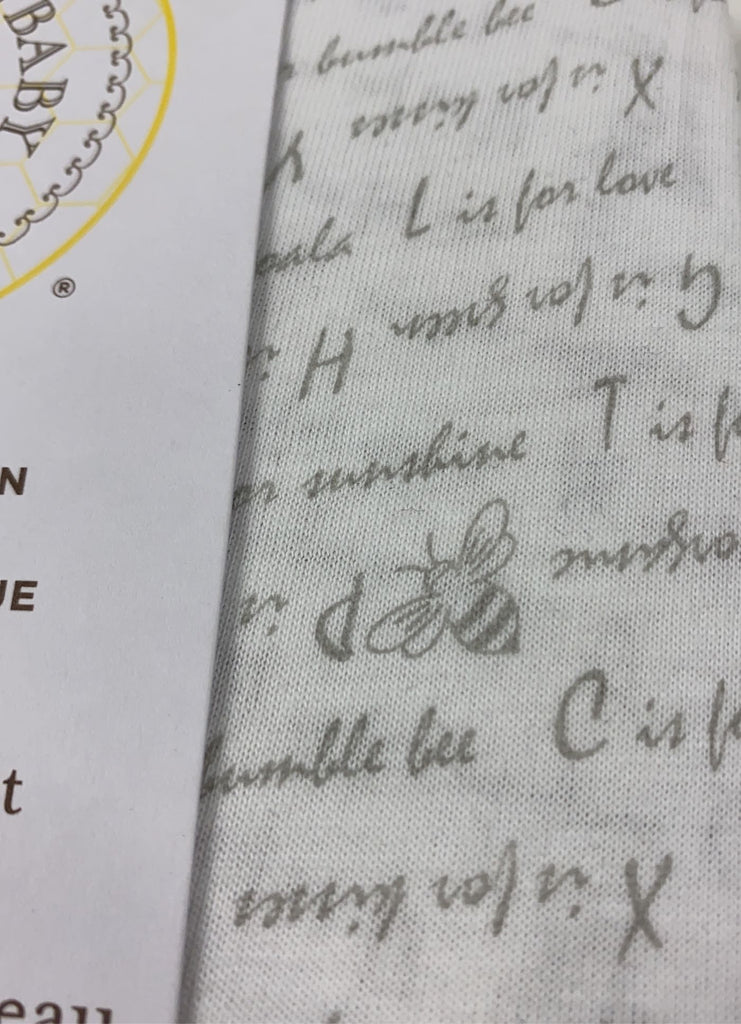 BABY
®
N
UE
t
eau
bumble bee
X is for kisses
Y
oala L is for love
G is for green
H is
or sunshine T is fo
P is
bumble bee C is fo
X is for kisses